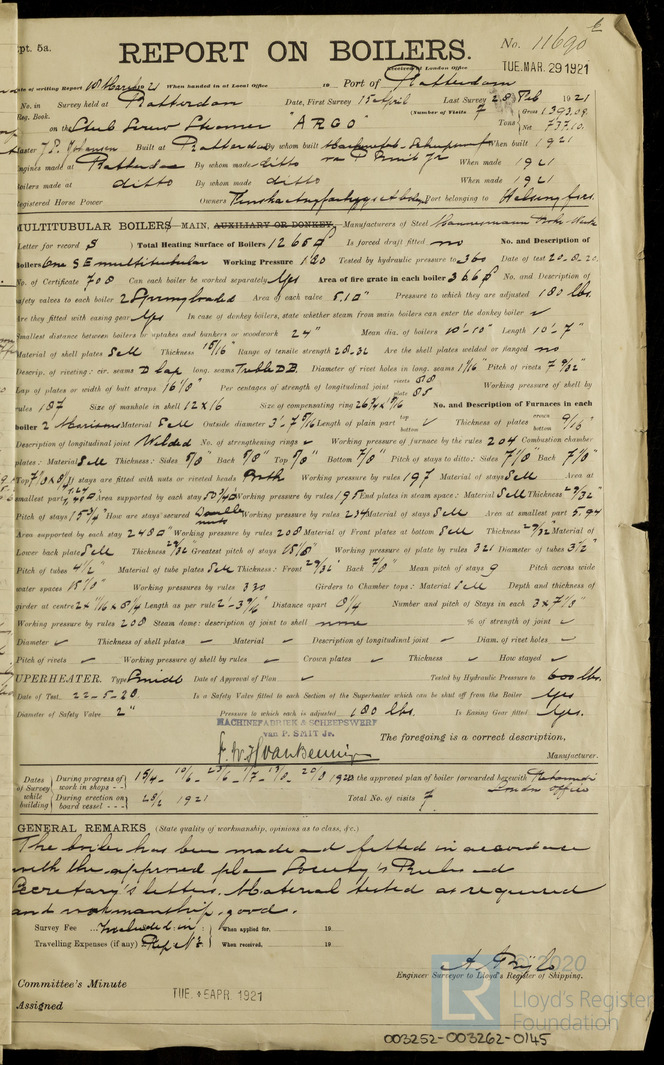 pt. 5a.
REPORT ON BOILERS.
No. 11690
Received at London Office
TUE. MAR. 29 1921
Date of writing Report 18 March 1921 When handed in at Local Office 19 Port of Rotterdam
No. in Survey held at Rotterdam Date, First Survey 15 April Last Survey 28 Feb 1921
Reg. Book. (Number of Visits 7 Gross 1393.09
on the Steel Screw Steamer "ARGO" Tons Net 737.10
Master J.P. Johansen Built at Rotterdam By whom built When built 1921
Engines made at Rotterdam By whom made ditto When made 1921
Boilers made at ditto By whom made ditto When made 1921
Registered Horse Power Owners Port belonging to Helsingfors
MULTITUBULAR BOILERS MAIN, AUXILIARY OR DONKEY. Manufacturers of Steel
Letter for record S ) Total Heating Surface of Boilers 1265 Is forced draft fitted no No. and Description of
Boilers One SE multitubular Working Pressure 180 Tested by hydraulic pressure to 360 Date of test 20.8.20.
No. of Certificate 708 Can each boiler be worked separately Yes Area of fire grate in each boiler 36.6 No. and Description of
safety valves to each boiler 2 Spring loaded Area of each valve 5.10" Pressure to which they are adjusted 180 lbs.
Are they fitted with easing gear Yes In case of donkey boilers, state whether steam from main boilers can enter the donkey boiler ✓
Smallest distance between boilers or uptakes and bunkers or woodwork 24" Mean dia. of boilers 10'-10" Length 10'-7"
Material of shell plates Steel Thickness 15/16" Range of tensile strength 28-32 Are the shell plates welded or flanged no
Descrip. of riveting: cir. seams D lap long. seams Treble D.B. Diameter of rivet holes in long. seams 1 1/16" Pitch of rivets 7 9/32"
Lap of plates or width of butt straps 16 1/8" Per centages of strength of longitudinal joint rivets 88 plate 85 Working pressure of shell by
rules 187 Size of manhole in shell 12 x 16 Size of compensating ring No. and Description of Furnaces in each
boiler 2 Morison Material Steel Outside diameter Length of plain part top bottom ✓ Thickness of plates crown bottom 9/16"
Description of longitudinal joint Welded No. of strengthening rings ✓ Working pressure of furnace by the rules 204 Combustion chamber
plates: Material Steel Thickness: Sides 5/8" Back 5/8" Top 5/8" Bottom 7/8" Pitch of stays to ditto: Sides 7/8" Back 7 7/8"
Top stays are fitted with nuts or riveted heads Both Working pressure by rules 197 Material of stays Steel Area at
smallest part Area supported by each stay Working pressure by rules 195 End plates in steam space: Material Steel Thickness 29/32"
Pitch of stays 15 3/4" How are stays secured Double nuts Working pressure by rules 234 Material of stays Steel Area at smallest part 5.94
Area supported by each stay 248 Working pressure by rules 208 Material of Front plates at bottom Steel Thickness 29/32" Material of
Lower back plate Steel Thickness 29/32" Greatest pitch of stays 15 1/8" Working pressure of plate by rules 321 Diameter of tubes 3 1/2"
Pitch of tubes 4 1/2" Material of tube plates Steel Thickness: Front 29/32" Back 7/8" Mean pitch of stays 9 Pitch across wide
water spaces Working pressures by rules 330 Girders to Chamber tops: Material Steel Depth and thickness of
girder at centre Length as per rule Distance apart 8 1/4 Number and pitch of Stays in each 3 x 7 1/8"
Working pressure by rules 208 Steam dome: description of joint to shell none % of strength of joint ✓
Diameter ✓ Thickness of shell plates ✓ Material ✓ Description of longitudinal joint ✓ Diam. of rivet holes ✓
Pitch of rivets ✓ Working pressure of shell by rules ✓ Crown plates ✓ Thickness ✓ How stayed ✓
UPERHEATER. Type Date of Approval of Plan ✓ Tested by Hydraulic Pressure to 600 lbs.
Date of Test 22-5-20 Is a Safety Valve fitted to each Section of the Superheater which can be shut off from the Boiler Yes
Diameter of Safety Valve 2" Pressure to which each is adjusted 180 lbs. Is Easing Gear fitted Yes.
MACHINEFABRIEK & SCHEEPSWERF
van P. SMIT Jr.
The foregoing is a correct description,
Manufacturer.
Dates of Survey while building During progress of work in shops - - 1920 the approved plan of boiler forwarded herewith London office
During erection on board vessel - - - 28/2 1921 Total No. of visits 7
GENERAL REMARKS (State quality of workmanship, opinions as to class, &c.)
The boiler has been made and fitted in accordance
with the approved plan Society's Rules and
Secretary's letters. Material tested as required
and workmanship good.
Survey Fee Included in When applied for, 19
Travelling Expenses (if any) When received, 19
Engineer Surveyor to Lloyd's Register of Shipping.
Committee's Minute TUE. 5 APR. 1921
Assigned
© 2020
LR Lloyd's Register
Foundation
003252-003262-0145